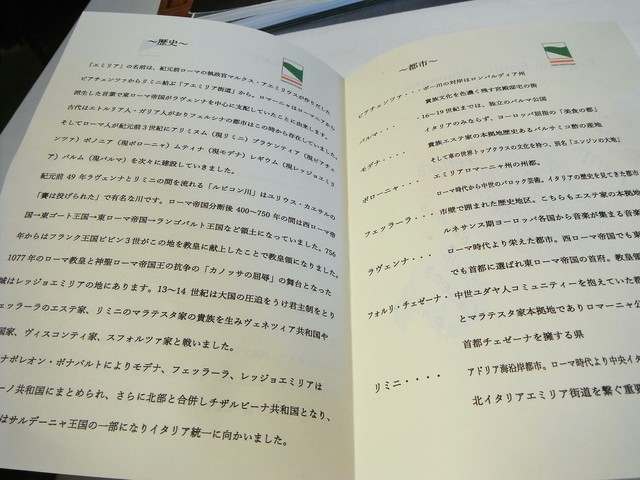 ～歴史～
「エミリア」の名前は、紀元前ローマの執政官マルクス・アエミリウスが作りだした
ピアチェンツァからリミニ結ぶ「アエミリア街道」から。ロマーニャはローマ人から
派生した言葉で東ローマ帝国がラヴェンナを中心に支配していたことに由来します。
古代はエトルリア人・ガリア人がおりフェルシナの都市はこの時から存在していました。
そしてローマ人が紀元前3世紀にアリミヌム（現リミニ）プラケンティア（現ピアチェ
ンツァ）ボノニア（現ボローニャ）ムティナ（現モデナ）レギウム（現レッジョエミリ
ア）パルム（現パルマ）を次々に建設していきました。
紀元前 49 年ラヴェンナとリミニの間を流れる「ルビコン川」はユリウス・カエサルの
「賽は投げられた」で有名な川です。ローマ帝国分断後 400～750 年の間は西ローマ帝
国→東ゴート王国→東ローマ帝国→ランゴバルト王国など領土になっていました。756
年からはフランク王国ピピン3世がこの地を教皇に献上したことで教皇領になりました。
1077 年のローマ教皇と神聖ローマ帝国王の抗争の「カノッサの屈辱」の舞台となった
城はレッジョエミリアの地にあります。13～14 世紀は大国の圧迫をうけ君主制をとり
ェッラーラのエステ家、リミニのマラテスタ家の貴族を生みヴェネツィア共和国や
国家、ヴィスコンティ家、スフォルツァ家と戦いました。
ナポレオン・ボナパルトによりモデナ、フェッラーラ、レッジョエミリアは
ーノ共和国にまとめられ、さらに北部と合併しチザルピーナ共和国となり、
はサルデーニャ王国の一部になりイタリア統一に向かいました。
～都市～
ピアチェンツァ・・・ポー川の対岸はロンバルディア州
貴族文化を色濃く残す宮殿邸宅の街
パルマ・・・・16～19世紀までは、独立のパルマ公国
イタリアのみならず、ヨーロッパ屈指の「美食の都」
モデナ・・・・貴族エステ家の本拠地歴史あるバルサミコ酢の産地
そして車の世界トップクラスの文化を持つ、別名「エンジンの大地」
ボローニャ・・・エミリアロマーニャ州の州都。
ローマ時代から中世のバロック芸術。イタリアの歴史を見てきた都市
フェッラーラ・・・市壁で囲まれた歴史地区。こちらもエステ家の本拠地
ルネサンス期ヨーロッパ各国から音楽が集まる音楽
ラヴェンナ・・・ローマ時代より栄えた都市。西ローマ帝国でも東
でも首都に選ばれ東ローマ帝国の首府。教皇領
フォルリ・チェゼーナ・中世ユダヤ人コミュニティーを抱えていた都
とマラテスタ家本拠地でありロマーニャ公
首都チェゼーナを擁する県
リミニ・・・・アドリア海沿岸都市。ローマ時代より中央イタ
北イタリアエミリア街道を繋ぐ重要